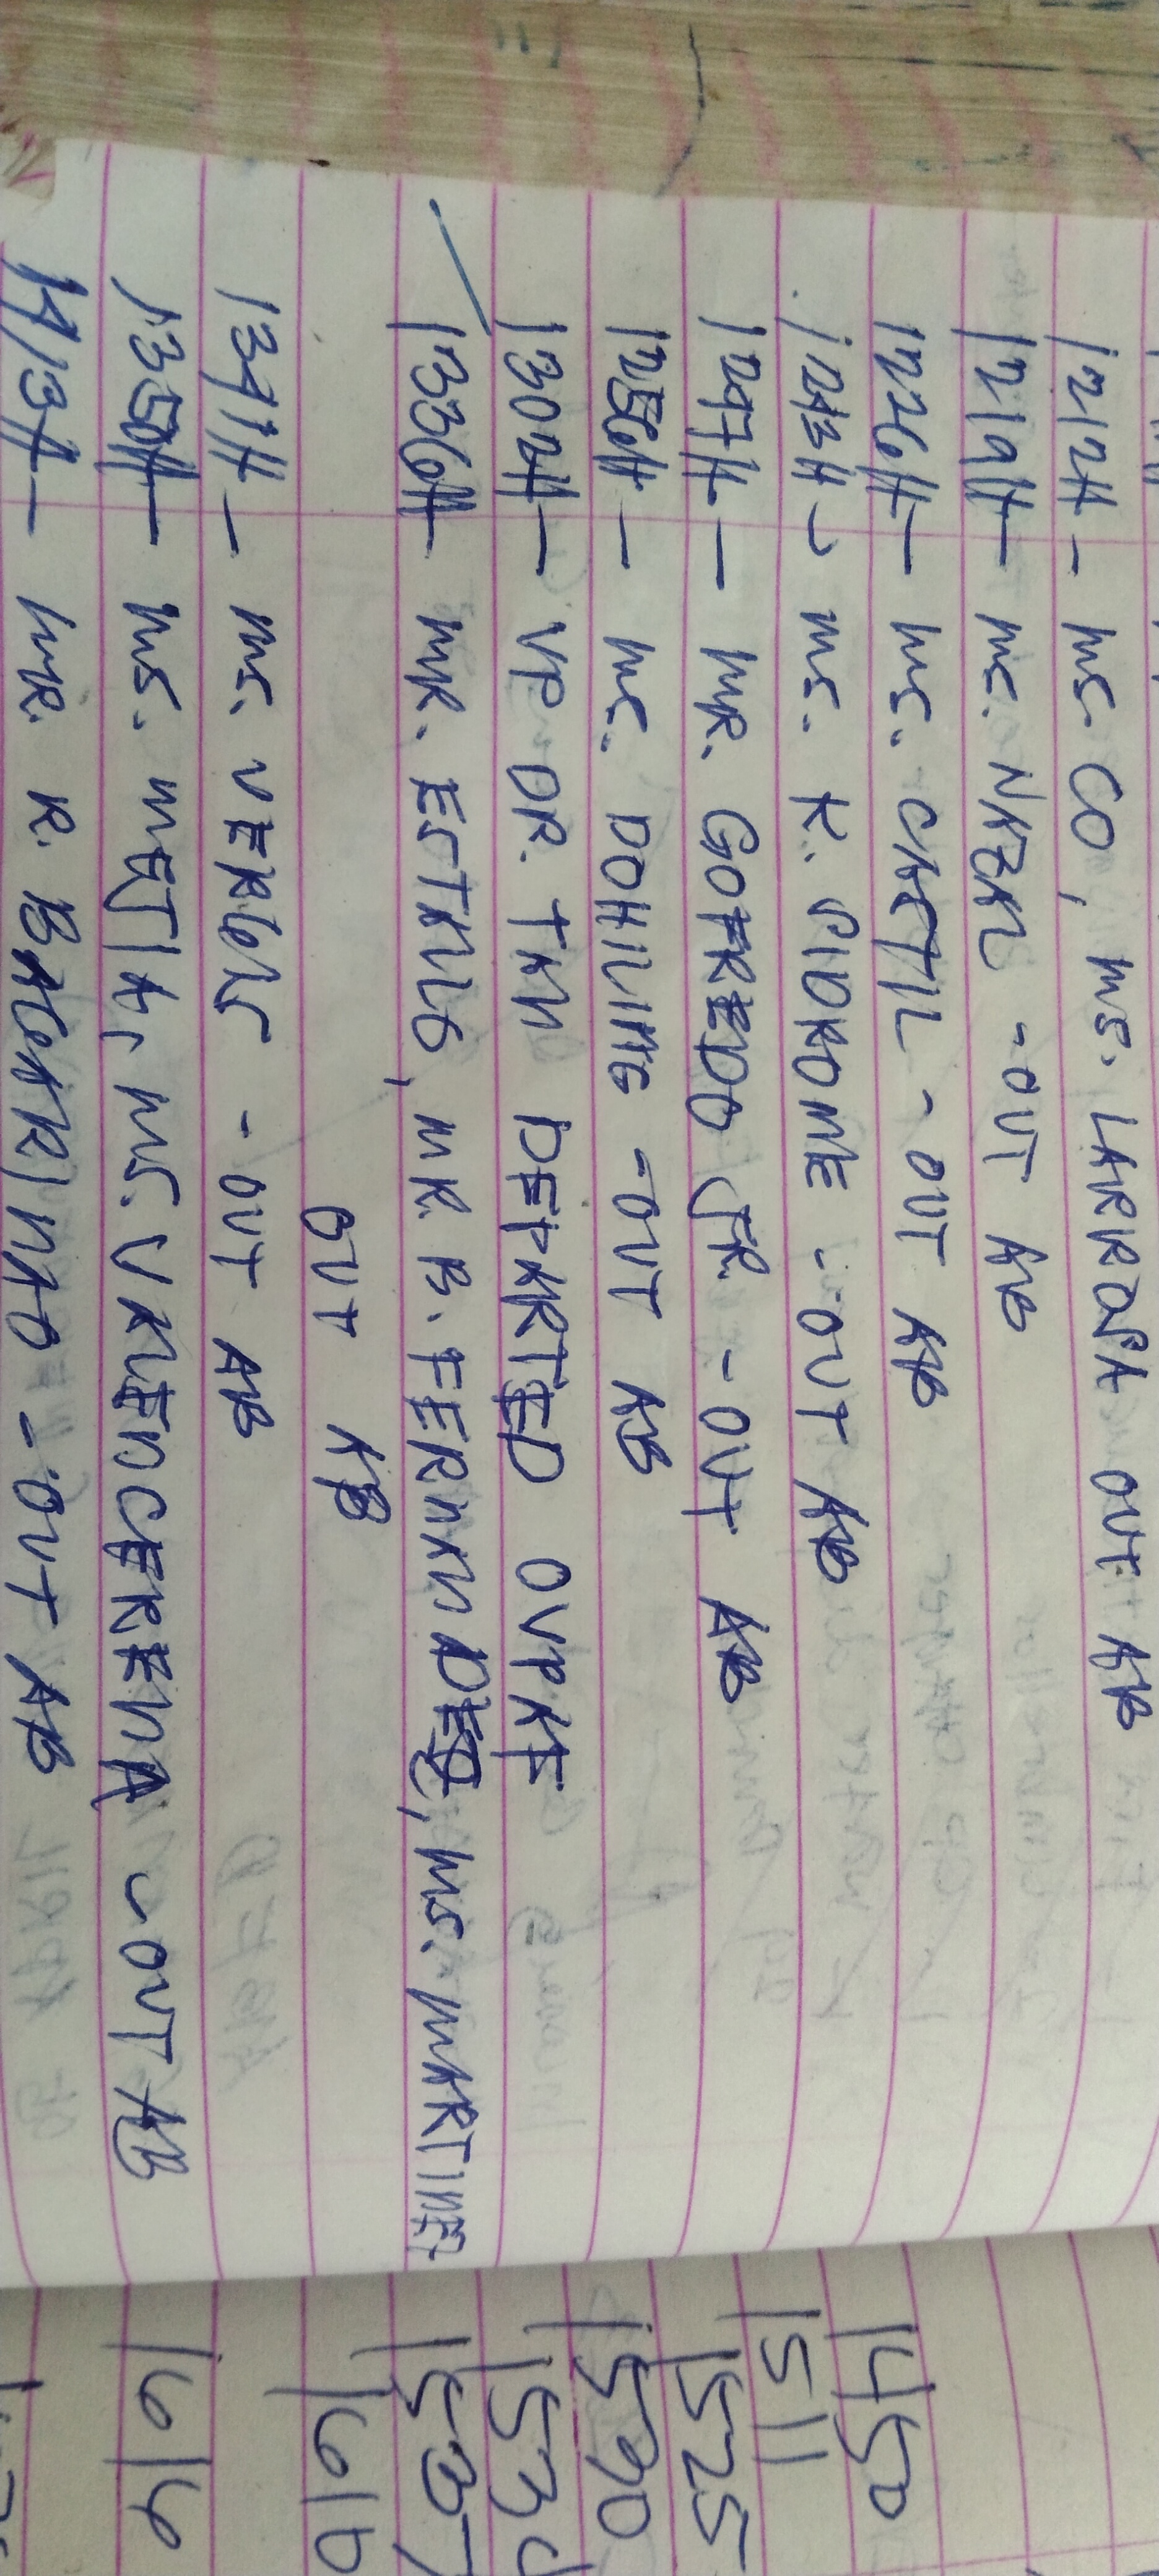 1212H - MS. CO, MS. LARROZA OUT AB
1219H - MS. NAZAL - OUT AB
1226H - MS. CASTIL - OUT AB
1243H - MS. K. SIDROME - OUT AB
1247H - MR. GOFREDO JR. - OUT AB
1256H - MS. DOHILING - OUT AB
1302H - VP DR. TAN DEPARTED OVPAF
1336H - MR. ESTALLO, MR. R. FERNANDEZ, MS. MARTINEZ
OUT AB
1341H - MS. VERGAS - OUT AB
1350H - MS. MEJIA, MS. VALENCERENA - OUT AB
1413H - MR. R. BAGARINAO - OUT AB
1450
1511
1525
1590
153
1537
1616
1614